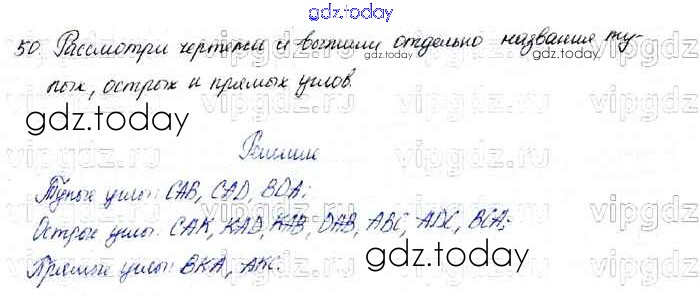 gdz.today
50. Рассмотри чертежи и выпиши отдельно названия ту-
gdz.today
пых, острых и прямых углов.
gdz.today
Решение
Тупые углы: CAB, CAD, BDA;
Острые углы: CAK, KAD, KAB, DAB, ABC, ADC, BCA;
Прямые углы: BKA, AKC.
gdz.today